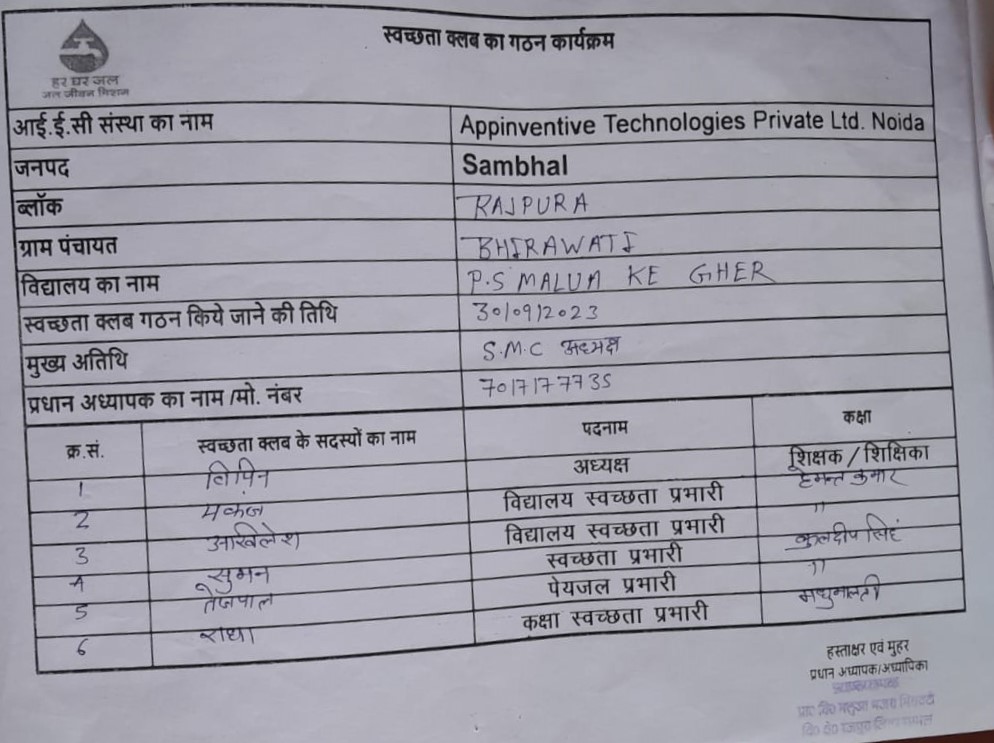 स्वच्छता क्लब का गठन कार्यक्रम
हर घर जल
जल जीवन मिशन
आई.ई.सी संस्था का नाम Appinventive Technologies Private Ltd. Noida
जनपद Sambhal
ब्लॉक RAJPURA
ग्राम पंचायत BHIRAWATI
विद्यालय का नाम P.S MALUA KE GHER
स्वच्छता क्लब गठन किये जाने की तिथि 30/09/2023
मुख्य अतिथि S.M.C अध्यक्ष
प्रधान अध्यापक का नाम /मो. नंबर 7017177735
क्र.सं. स्वच्छता क्लब के सदस्यों का नाम पदनाम कक्षा
अध्यक्ष शिक्षक / शिक्षिका
1 विपिन विद्यालय स्वच्छता प्रभारी हेमन्त कुमार
2 विद्यालय स्वच्छता प्रभारी "
3 अखिलेश स्वच्छता प्रभारी कुलदीप सिंह
4 सुमन पेयजल प्रभारी "
5 तेजपाल कक्षा स्वच्छता प्रभारी मधुमालती
6 राधा
हस्ताक्षर एवं मुहर
प्रधान अध्यापक/अध्यापिका